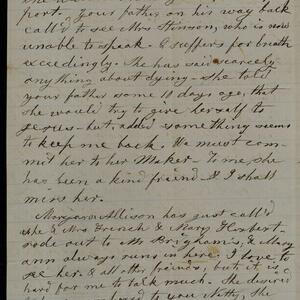 port - your father on his way back
call'd to see Mrs Stinson, who is now
unable to speak - & suffers for breath
exceedingly. She has said scarcely
anything about dying - she told
your father some 10 days ago, that
she would try to give herself to
Jesus - but, added something seems
to keep me back. We must com-
mit her to her Maker - To me, she
has been a kind friend & I shall
miss her.
Margaret Allison has just call'd
she & Mrs French & Mary Herbert
rode out to Mr Brigham's, & Mary
ann always runs in here. I love to
see her & all other friends, but it is
hard for me to talk much. She desired
to you Natty, She